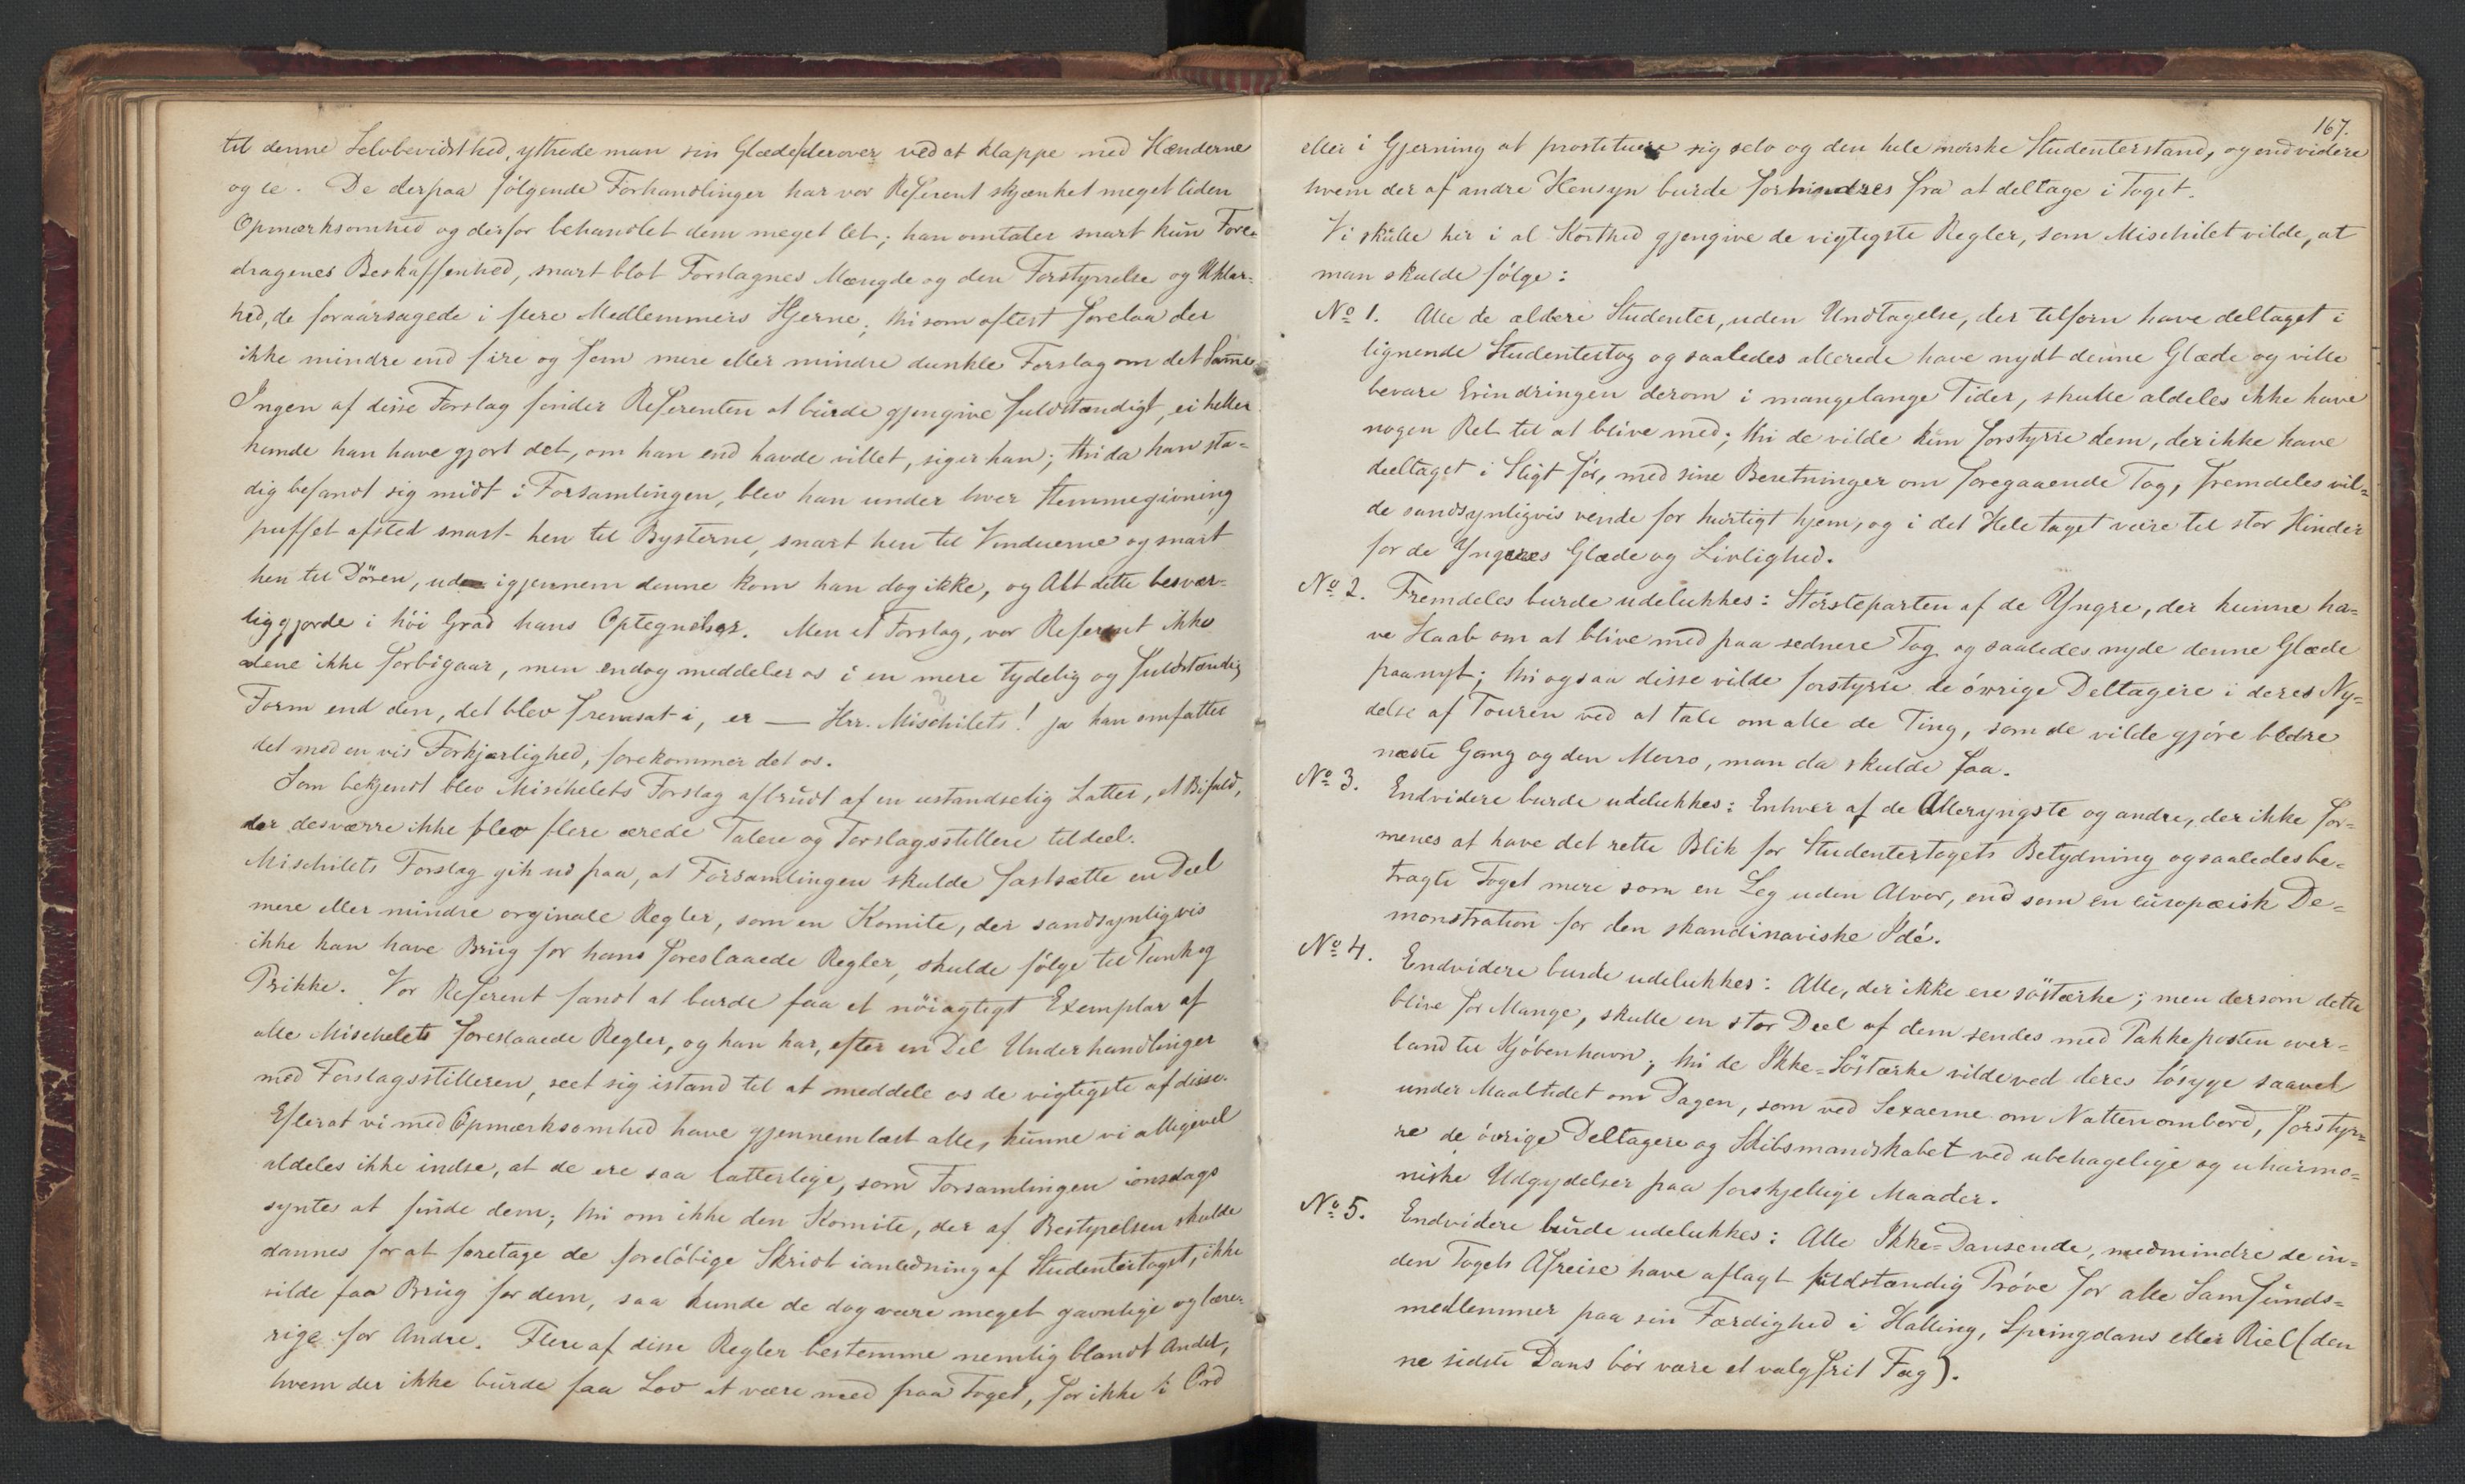 til denne Selvbevidsthed, yttrede man sin Glæde derover ved at klappe med Hænderne
og le. De derpaa følgende Forhandlinger har vor Referent skjænket meget liden
Opmærksomhed og derfor behandlet dem meget let; han omtaler snart kun Fore-
dragenes Beskaffenhed, snart blot Forslagnes Mængde og den Forstyrrelse og Uklar-
hed, de foraarsagede i flere Medlemmers Hjerne; thi som oftest forelaa der
ikke mindre end fire og fem mere eller mindre dunkle Forslag om det Samme.
Ingen af disse Forslag finder Referenten at burde gjengive fuldstændigt, ei heller
kunde han have gjort det, om han end havde villet, siger han; thi da han sta-
dig befandt sig midt i Forsamlingen, blev han under hver Stemmegivning
puffet afsted snart hen til Bysterne, snart hen til Vinduerne og snart
hen til Døren, ud igjennem denne kom han dog ikke, og Alt dette besvær-
liggjorde i høi Grad hans Optegnelser. Men et Forslag, vor Referent ikke
alene ikke forbigaar, men endog meddeler os i en mere tydelig og fuldstændig
Form end den, det blev fremsat i, er — Hrr. Mischilets! ja han omfatter
det med en vis Forkjærlighed, forekommer det os.
Som bekjendt blev Mischelets Forslag afbrudt af en ustandselig Latter, et Bifald,
der desværre ikke blev flere ærede Talere og Forslagsstillere tildeel.
Mischilets Forslag gik ud paa, at Forsamlingen skulde fastsætte en Deel
mere eller mindre orginale Regler, som en Komite, der sandsynligvis
ikke kan have Brug for hans foreslaaede Regler, skulde følge til Punkt og
Prikke. Vor Referent fandt at burde faa et nøiagtigt Exemplar af
alle Mischelets foreslaaede Regler, og han har, efter en Del Underhandlinger
med Forslagsstilleren, seet sig istand til at meddele os de vigtigste af disse.
Efterat vi med Opmærksomhed have gjennemlæst alle, kunne vi alligevel
aldeles ikke indse, at de ere saa latterlige, som Forsamlingen ionsdags
syntes at finde dem; thi om ikke den Komite, der af Bestyrelsen skulde
dannes for at foretage de foreløbige Skridt ianledning af Studentertoget, ikke
vilde faa Brug for dem, saa kunde de dog være meget gavnlige og lære-
rige for Andre. Flere af disse Regler bestemme nemlig blandt Andet,
hvem der ikke burde faa Lov at være med paa Toget, for ikke i Ord
167.
eller i Gjerning at prostituere sig selv og den hele norske Studenterstand, og endvidere
hvem der af andre Hensyn burde forhindres fra at deltage i Toget.
Vi skulle her i al Korthed gjengive de vigtigste Regler, som Mischilet vilde, at
man skulde følge:
No 1. Alle de ældere Studenter, uden Undtagelse, der tilforn have deltaget i
lignende Studentertog og saaledes allerede have nydt denne Glæde og ville
bevare Erindringen derom i mangelange Tider, skulle aldeles ikke have
nogen Ret til at blive med; thi de vilde kun forstyrre dem, der ikke have
deeltaget i Sligt før, med sine Beretninger om foregaaende Tog, fremdeles vil-
de sandsynligvis vende for hurtigt hjem, og i det Hele taget være til stor Hinder
for de Yngres Glæde og Livlighed.
No 2. Fremdeles burde udelukkes: Størsteparten af de Yngre, der kunne ha-
ve Haab om at blive med paa sednere Tog og saaledes nyde denne Glæde
paanyt; thi ogsaa disse vilde forstyrre de øvrige Deltagere i deres Ny-
delse af Touren ved at tale om alle de Ting, som de vilde gjøre bedre
næste Gang og den Morro, man da skulde faa.
No 3. Endvidere burde udelukkes: Enhver af de Alleryngste og andre, der ikke for-
menes at have det rette Blik for Studentertogets Betydning og saaledes be-
tragte Toget mere som en Leg uden Alvor, end som en europæisk De-
monstration for den skandinaviske Idé.
No 4. Endvidere burde udelukkes: Alle, der ikke ere søstærke; men dersom dette
blive for Mange, skulle en stor Deel af dem sendes med Pakkeposten over-
land til Kjøbenhavn; thi de Ikke-Søstærke vilde ved deres Søsyge saavel
under Maaltidet om Dagen, som ved Sexaerne om Natten ombord, forstyr-
re de øvrige Deltagere og Skibsmandskabet ved ubehagelige og uharmo-
niske Udgydelser paa forskjellige Maader.
No 5. Endvidere burde udelukkes: Alle Ikke-Dansende, medmindre de in-
den Togets Afreise have aflagt fuldstændig Prøve for alle Samfunds-
medlemmer paa sin Færdighed i Halling, Springdans eller Riel (den
ne sidste Dans bør være et valgfrit Fag).